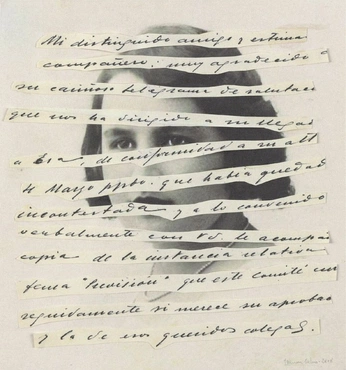 Mi distinguido amigo y estima
compañero: muy agradecido a
su cariñoso telegrama de salutaci
que nos ha dirigido a su llegad
a Esa, de conformidad a su att
de Mayo ppdo. que habia quedad
incontestada y a lo convenido
verbalmente con Vd. le acompañ
copia de la instancia relativa
"Prevision" que este Comité
seguidamente si merece su aprobac
y la de esos queridos colegas.